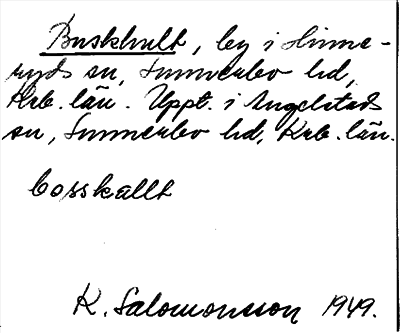 Buskhult, by i Hinne-
ryds sn, Sunnerbo hd,
Krb. län. Uppt. i Angelstads
sn, Sunnerbo hd, Krb. län.
bosskallt
K. Salomonsson 1949.